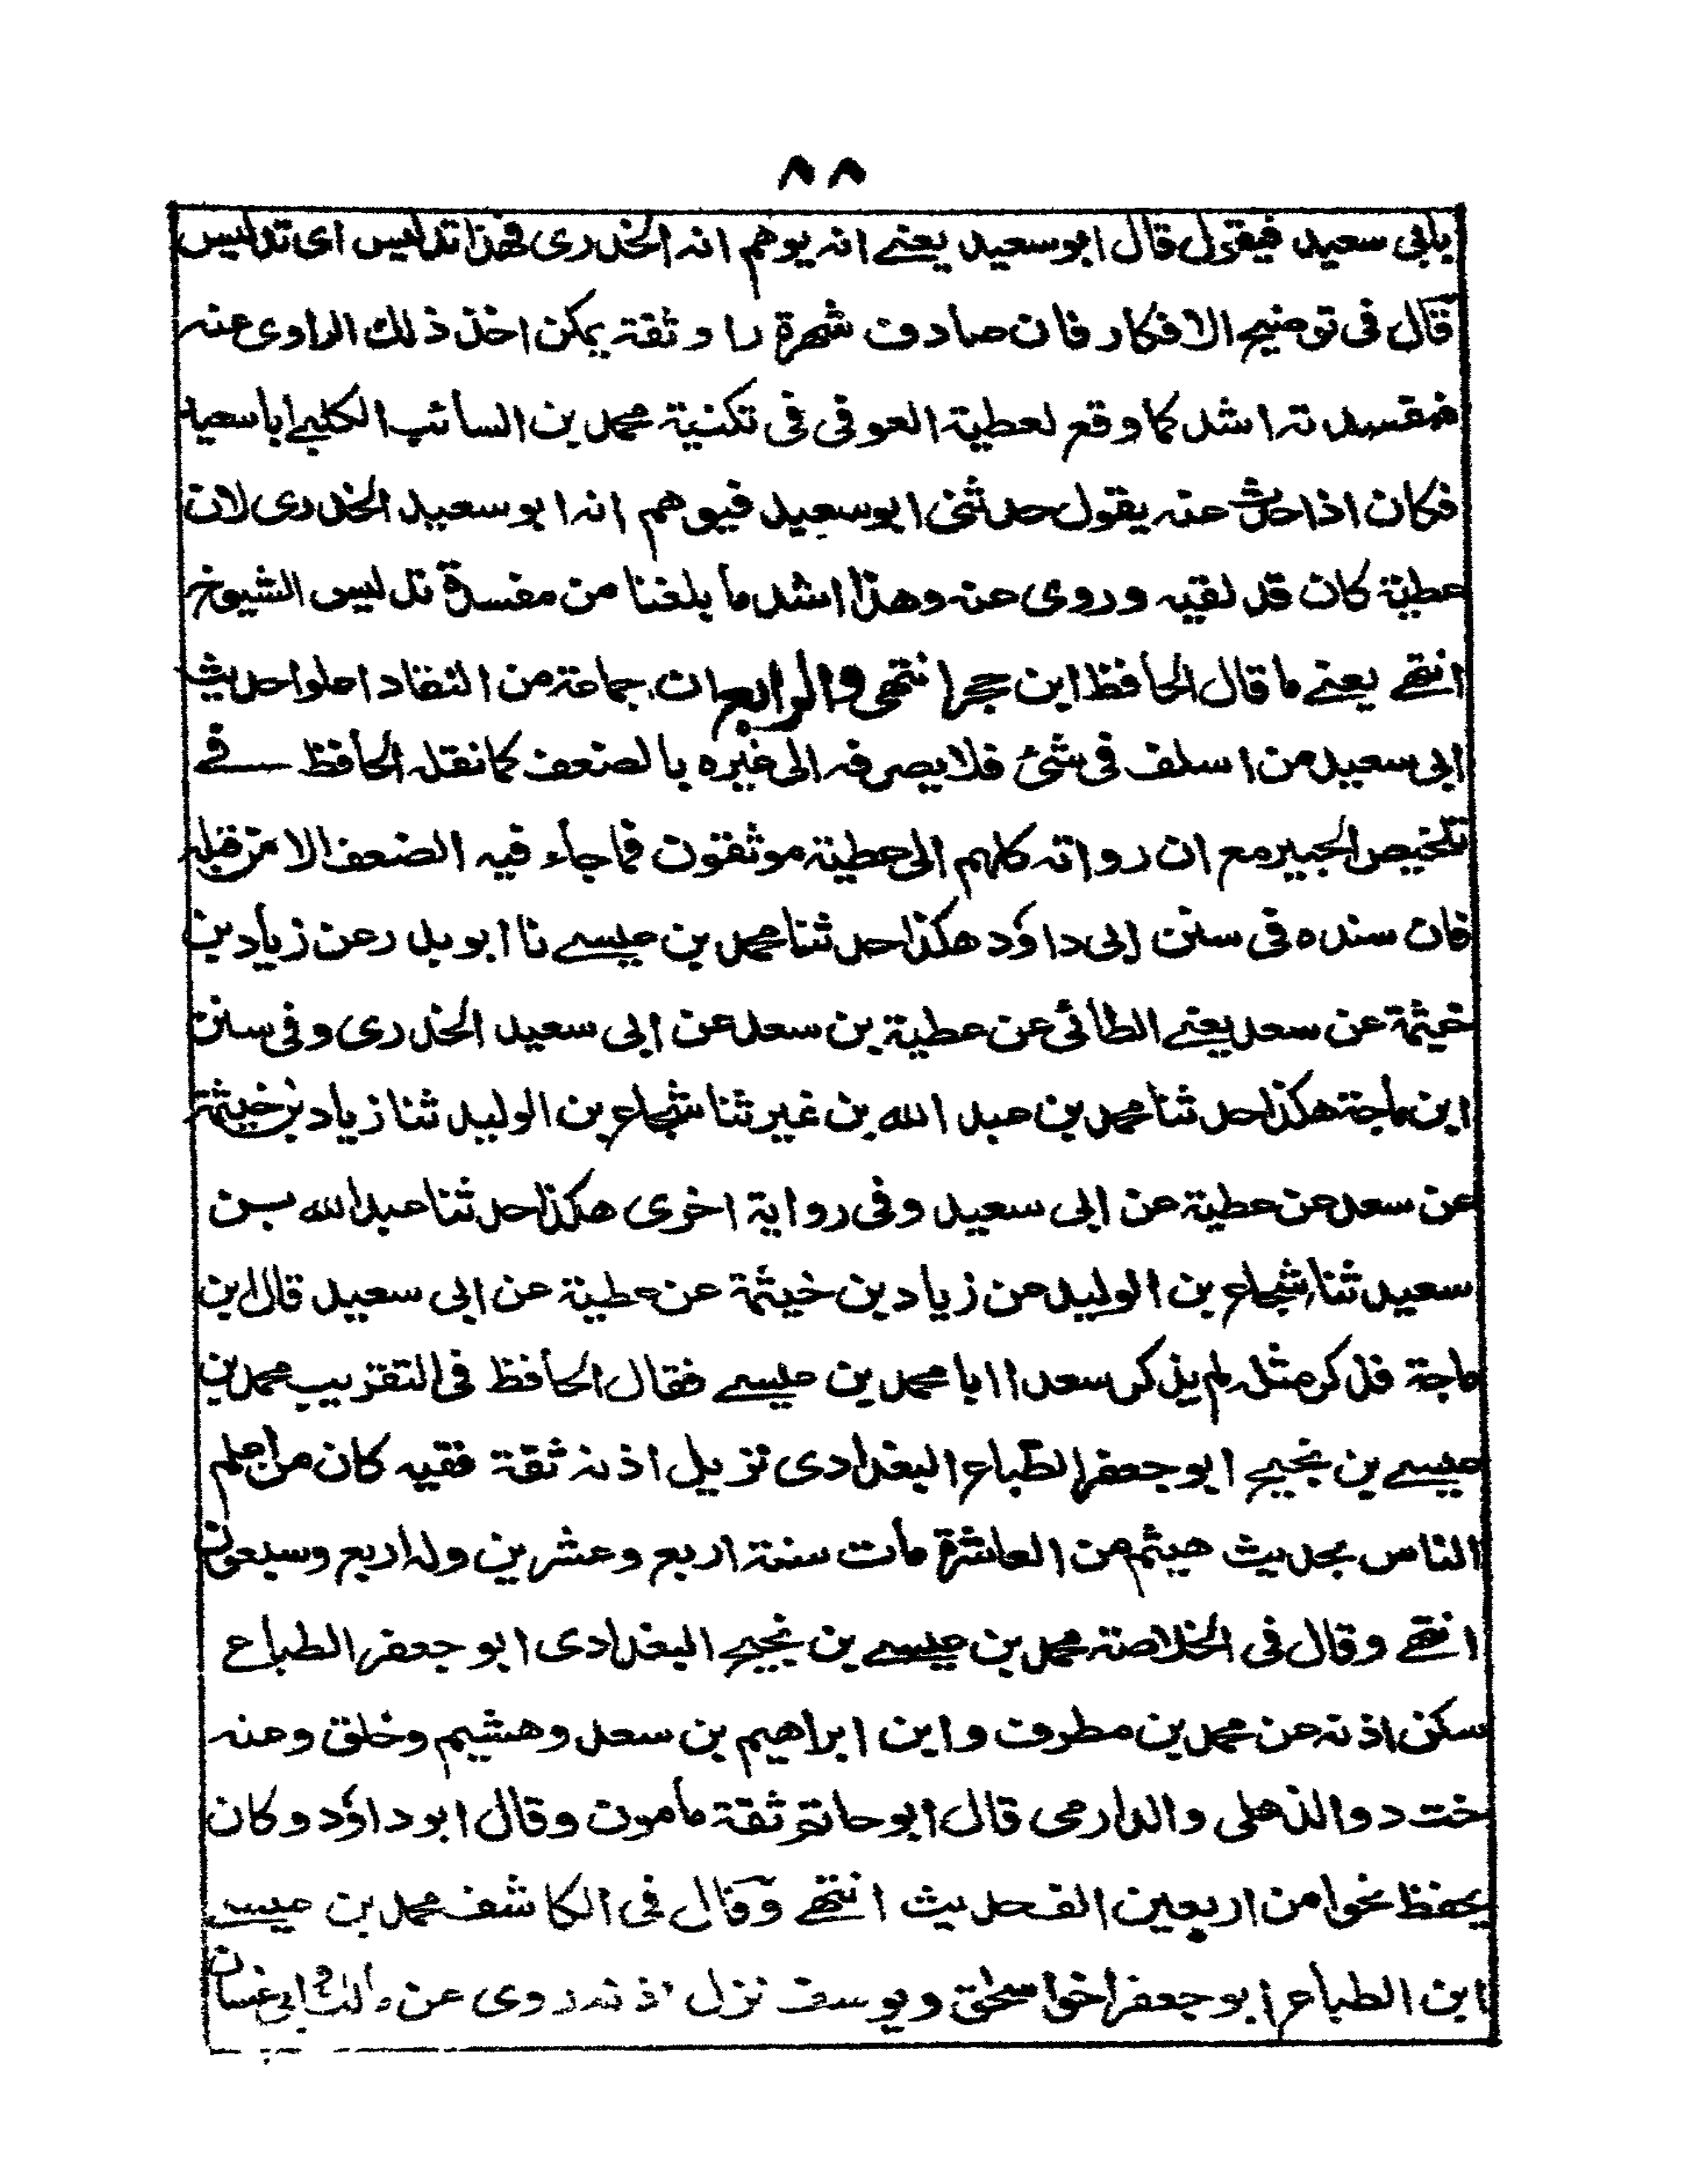 ٨٨
بابي سعيد فيقول قال ابوسعيد يعنے انه يوهم انه الخدرى فهذا تدليس اى تدليس
قال فى توضيح الافكار فان صادف شهرة راو ثقة يمكن اخذ ذلك الراوى عنه
فمفسدته اشد كما وقع لعطية العوفى فى تكنية محمد بن السائب الكلبے ابا سعيد
فكان اذا حدث عنه يقول حدثنى ابوسعيد فيوهم انه ابو سعيد الخدرى لان
عطية كان قد لقيه وروى عنه وهذا اشد ما بلغنا من مفسدة تدليس الشيوخ
انتهے يعنے ما قال الحافظ ابن حجر انتهى والرابع ان جماعة من النقاد اعلوا حديث
ابى سعيد من اسلف فى شئ فلا يصرفه الى غيره بالضعف كما نقله الحافظ فے
تلخيص الحبير مع ان رواته كلهم الى عطية موثقون فما جاء فيه الضعف الا من قبله
فان سنده فى سنن ابى داؤد هكذا حدثنا محمد بن عيسے نا ابو بدر عن زياد بن
خيثمة عن سعد يعنے الطائى عن عطية بن سعد عن ابى سعيد الخدرى وفى سنن
ابن ماجة هكذا حدثنا محمد بن عبد الله بن غير ثنا شجاع بن الوليد ثنا زياد بن خيثمة
عن سعد عن عطية عن ابى سعيد وفى رواية اخرى هكذا حدثنا عبد الله بن
سعيد ثنا شجاع بن الوليد عن زياد بن خيثمة عن عطية عن ابى سعيد قال ابن
ماجة فذكر مثله لم يذكر سعدا ابا محمد بن عيسے فقال الحافظ فى التقريب محمد بن
عيسے بن نجيح ابو جعفر الطباع البغدادى نزيل اذنه ثقة فقيه كان من اعلم
الناس بحديث هيثم من العاشرة مات سنة اربع وعشرين وله اربع وسبعون
انتهے وقال فى الخلاصة محمد بن عيسے بن نجيح البغدادى ابو جعفر الطباع
سكن اذنه عن محمد بن مطرف وابن ابراهيم بن سعد وهشيم وخلق وعنه
خت د والذهلى والدارمى قال ابو حاتم ثقة مأمون وقال ابو داؤد وكان
يحفظ نحوا من اربعين الف حديث انتهے وقال فى الكاشف محمد بن عيسے
ابن الطباع ابو جعفر اخو اسحٰق ويوسف نزل اذنه روى عن مالك وابى غسان